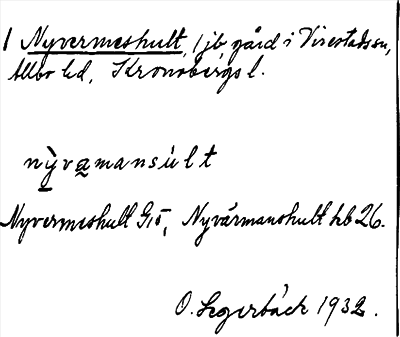 1 Nyvermeshult, 1 jb gård i Virestads sn,
Allbo hd, Kronobergs l.
nỳvamansúlt
Nyvermeshult G10, Nyvärmanshult hb 26.
O. Segerbäck 1932.